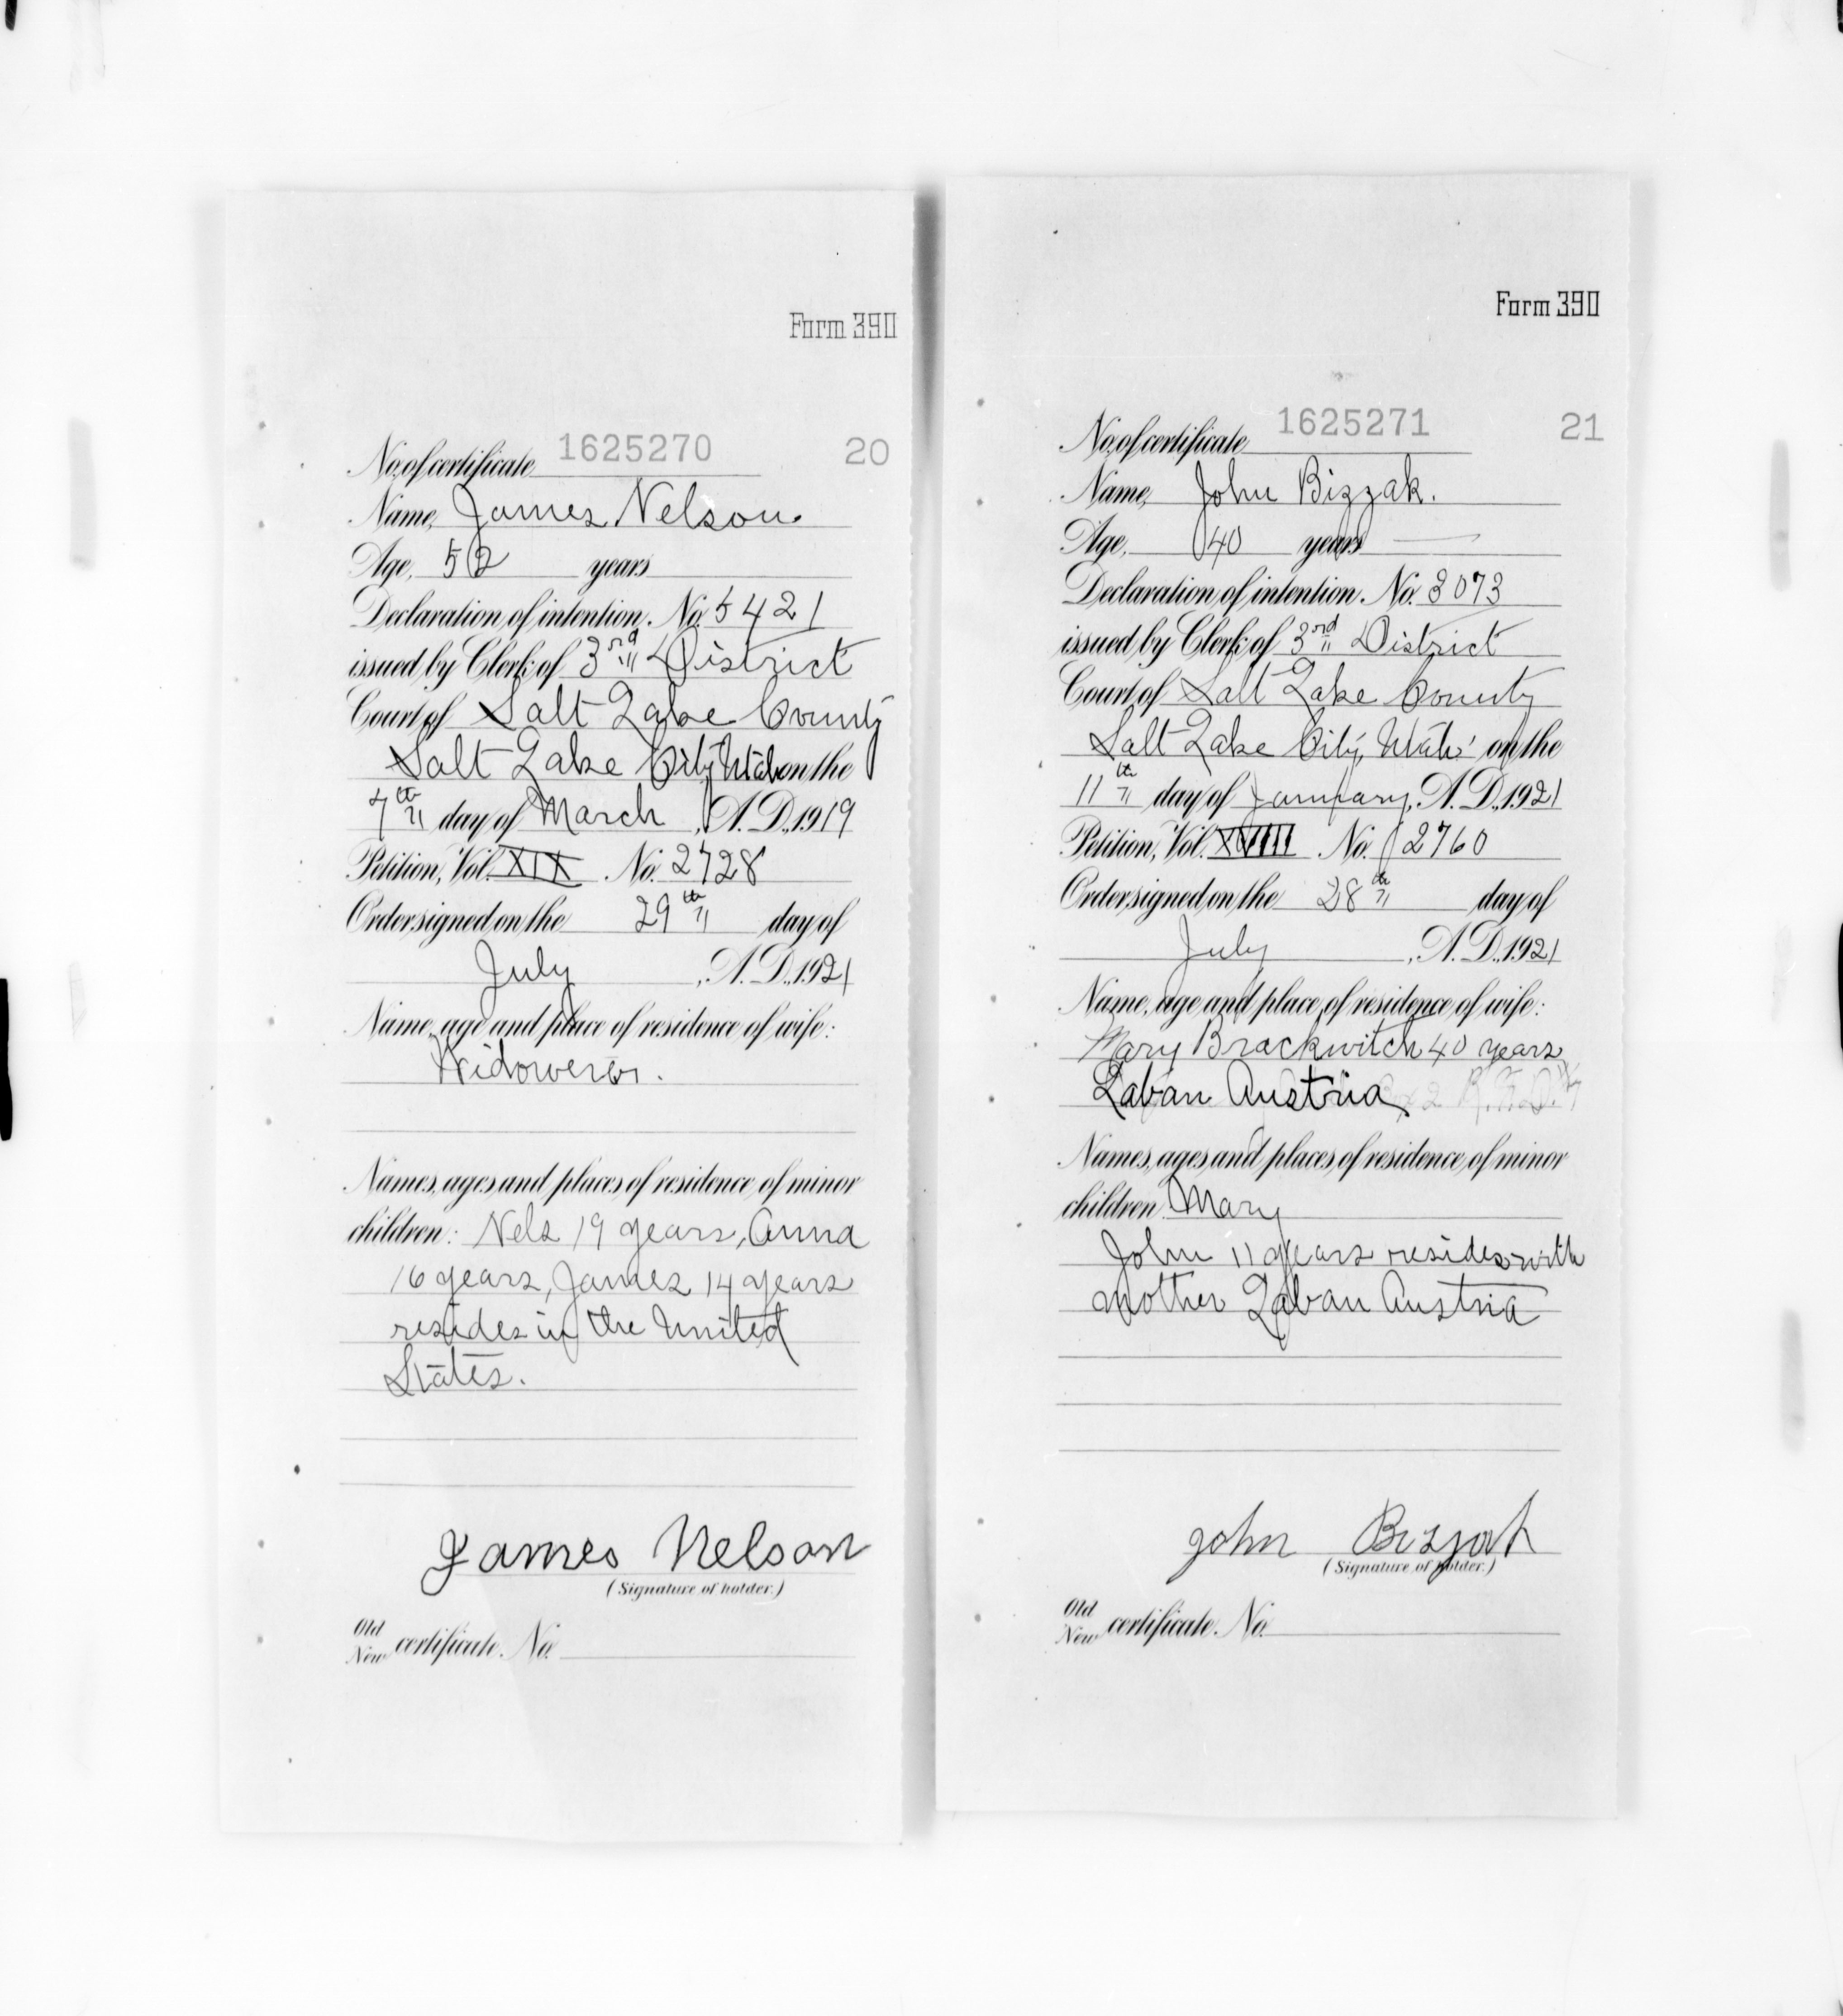 Form 390
No. of certificate 1625270 20
Name, James Nelson.
Age, 52 years
Declaration of intention. No. 5421
issued by Clerk of 3rd District
Court of Salt Lake County
Salt Lake City, Utah on the
7th day of March, A. D., 1919
Petition, Vol. XIX No. 2728
Order signed on the 29th day of
July, A. D., 1921
Name, age and place of residence of wife:
Names, ages and places of residence of minor
children: Nels 19 years, Anna
16 years, James 14 years
resides in the United
States.
James Nelson
(Signature of holder.)
Old
New certificate. No.
Form 390
No. of certificate 1625271 21
Name, John Bizzak.
Age, 40 years
Declaration of intention. No. 3073
issued by Clerk of 3rd District
Court of Salt Lake County
Salt Lake City, Utah on the
11th day of January, A. D., 1921
Petition, Vol. No. 2760
Order signed on the 28th day of
July, A. D., 1921
Name, age and place of residence of wife:
Mary Brackwitch 40 years
Laban Austria
Names, ages and places of residence of minor
children Mary
John 11 years resides with
mother Laban Austria
John Bizzak
(Signature of holder.)
Old
New certificate. No.